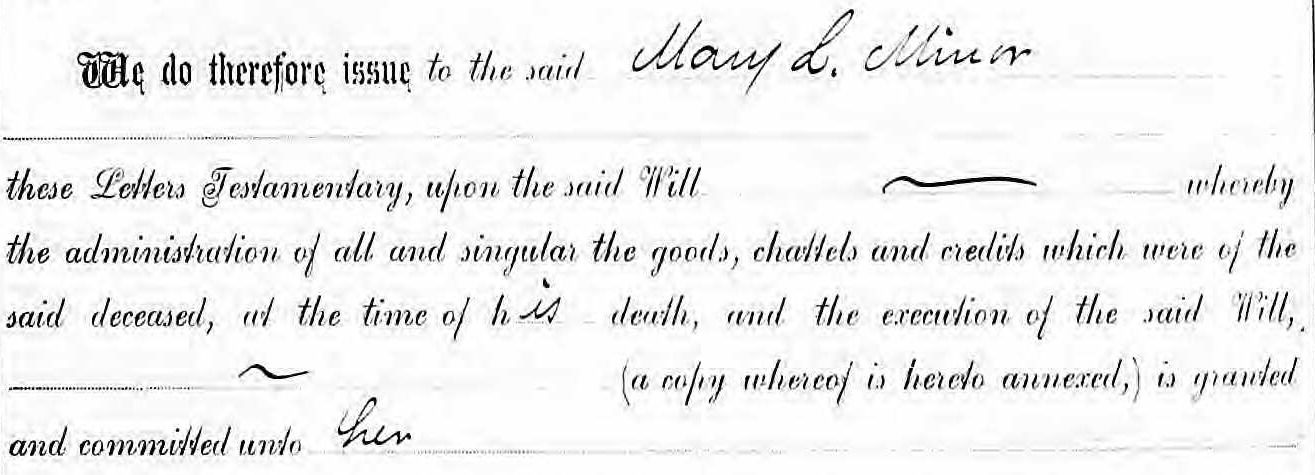 We do therefore issue to the said Mary L. Minor
these Letters Testamentary, upon the said Will whereby
the administration of all and singular the goods, chattels and credits which were of the
said deceased, at the time of his death, and the execution of the said Will,
(a copy whereof is hereto annexed,) is granted
and committed unto her